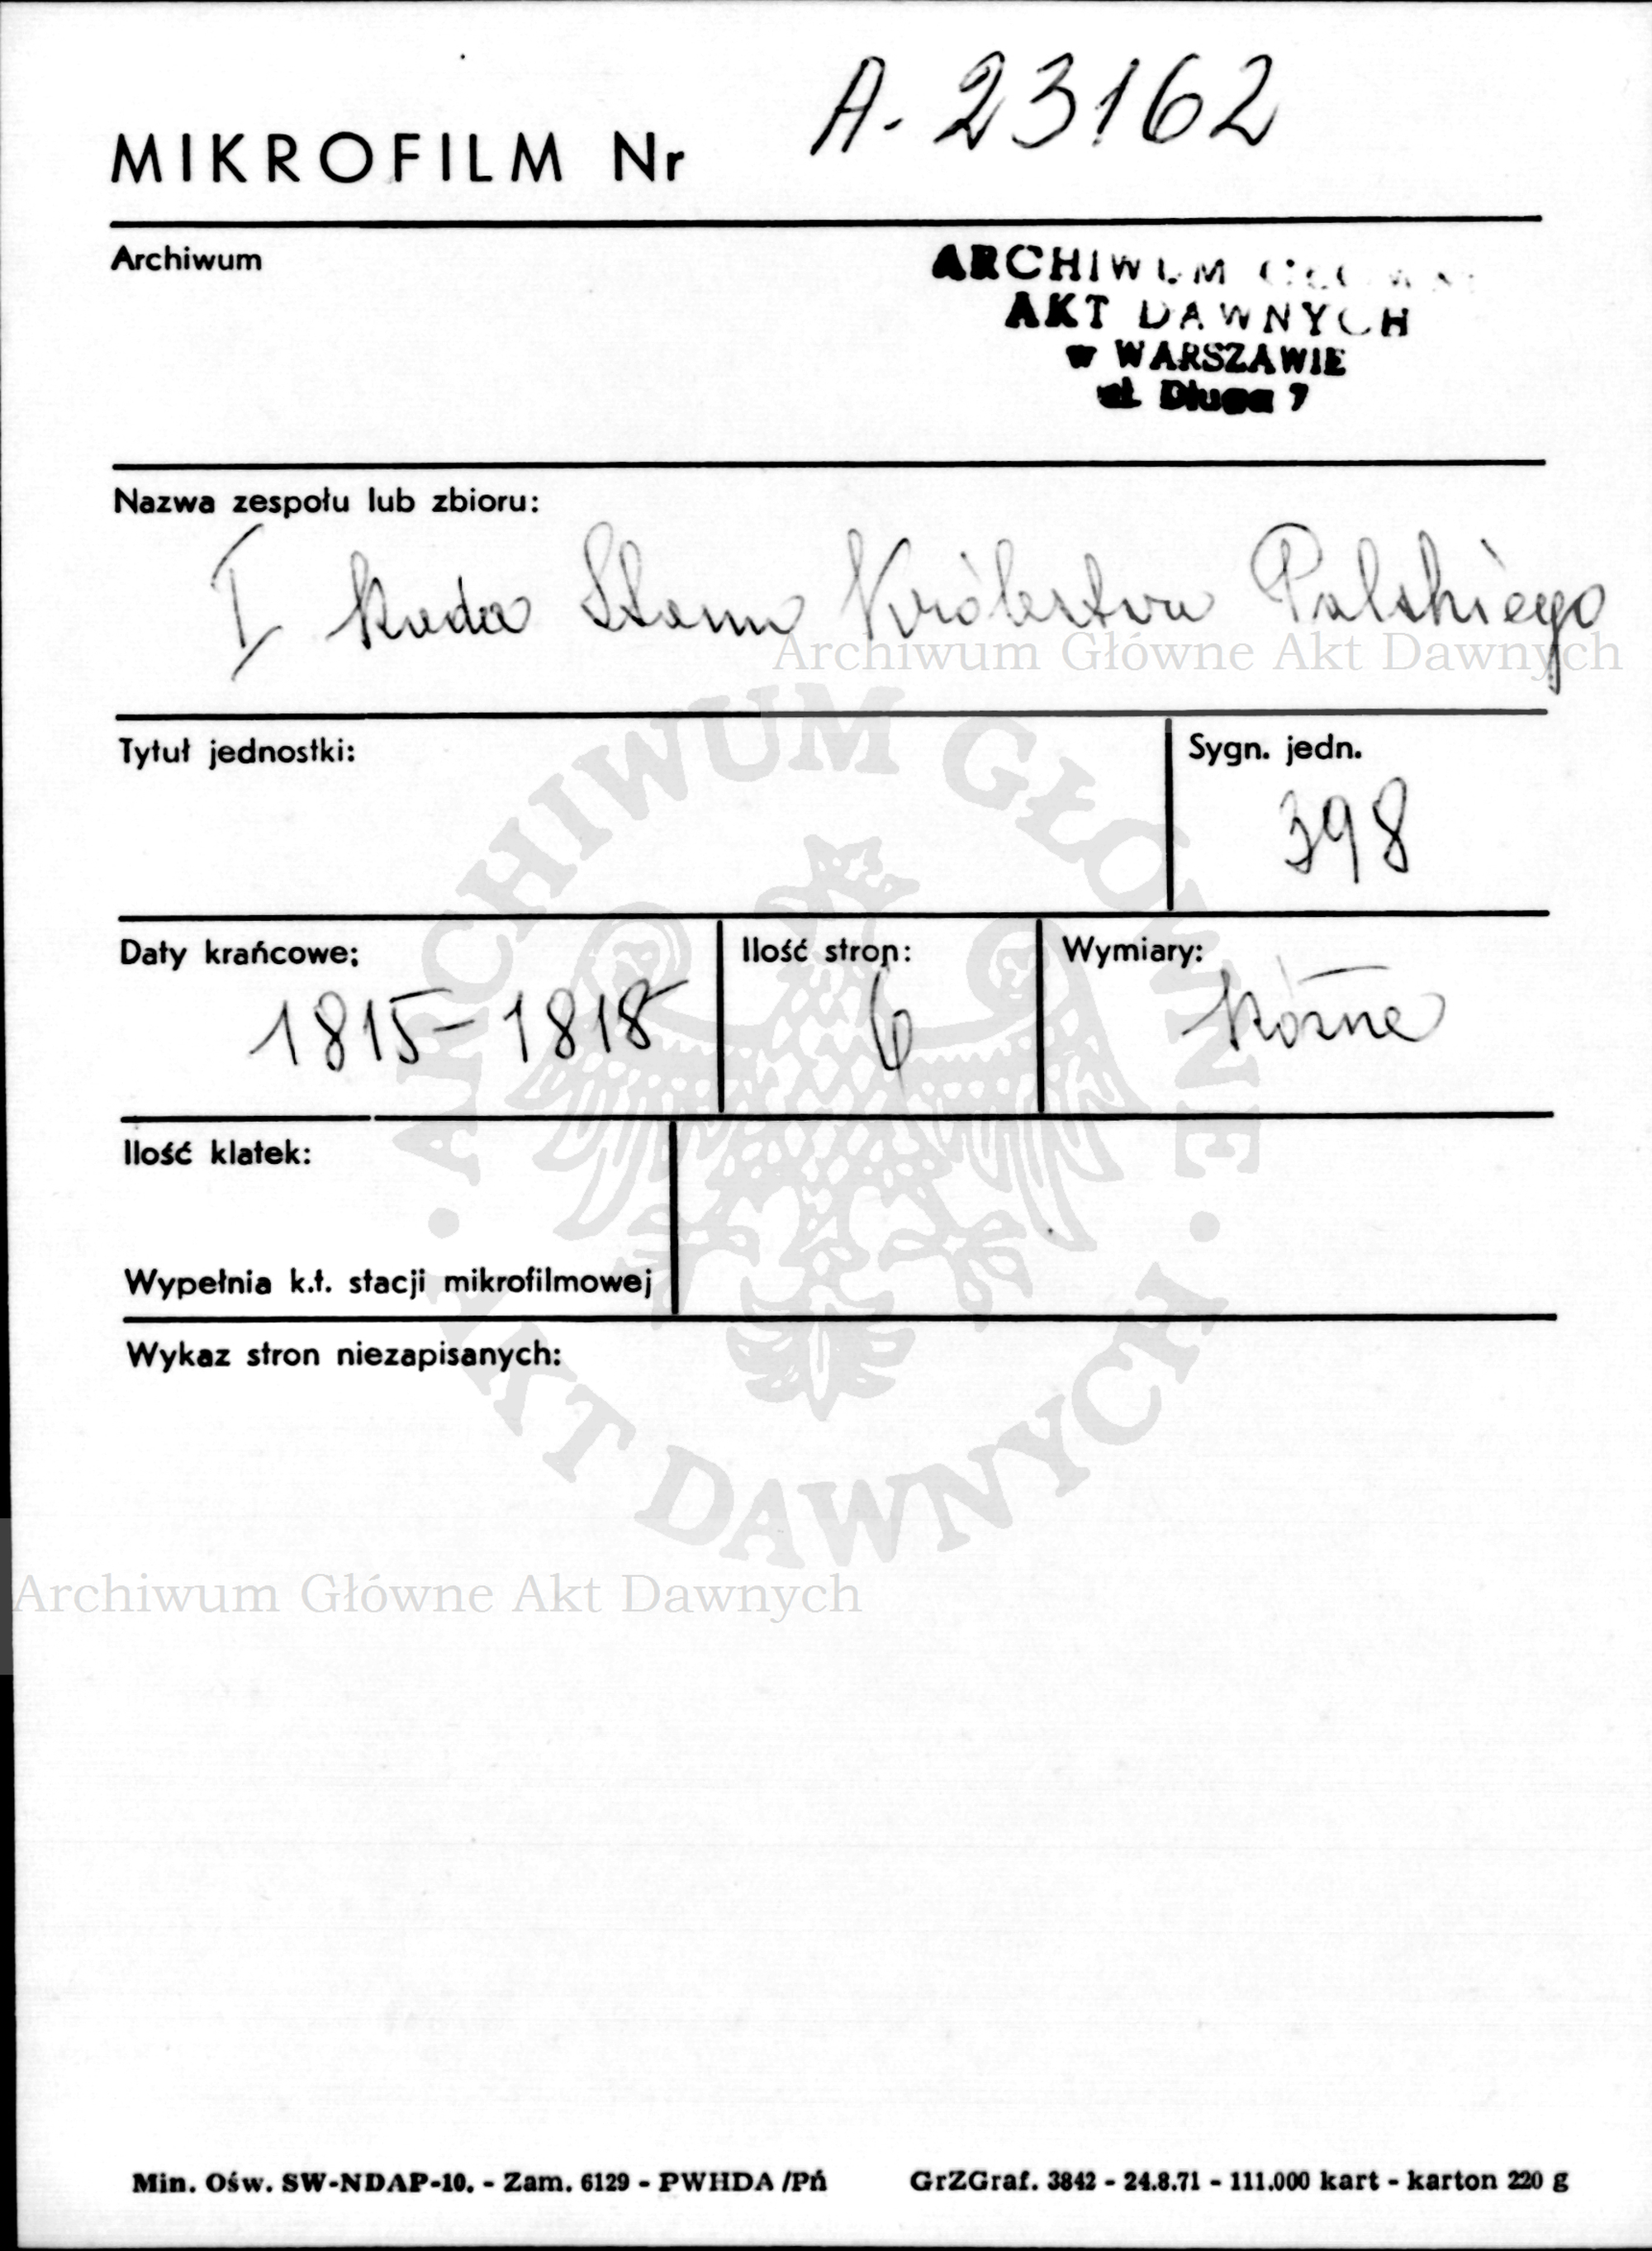 A-23162
MIKROFILM Nr
Archiwum
ARCHIWUM
AKT DAWNYCH
w WARSZAWIE
ul. Długa 7
Nazwa zespołu lub zbioru:
I Rada Stanu Królestwa Polskiego
Archiwum Główne Akt Dawnych
Tytuł jednostki:
Sygn. jedn.
398
Daty krańcowe:
1815-1818
Ilość stron:
6
Wymiary:
Różne
Ilość klatek:
Wypełnia k.t. stacji mikrofilmowej
Wykaz stron niezapisanych:
ARCHIWUM GŁÓWNE
AKT DAWNYCH
Archiwum Główne Akt Dawnych
Min. Ośw. SW-NDAP-10. - Zam. 6129 - PWHDA /Pń GrZGraf. 3842 - 24.8.71 - 111.000 kart - karton 220 g